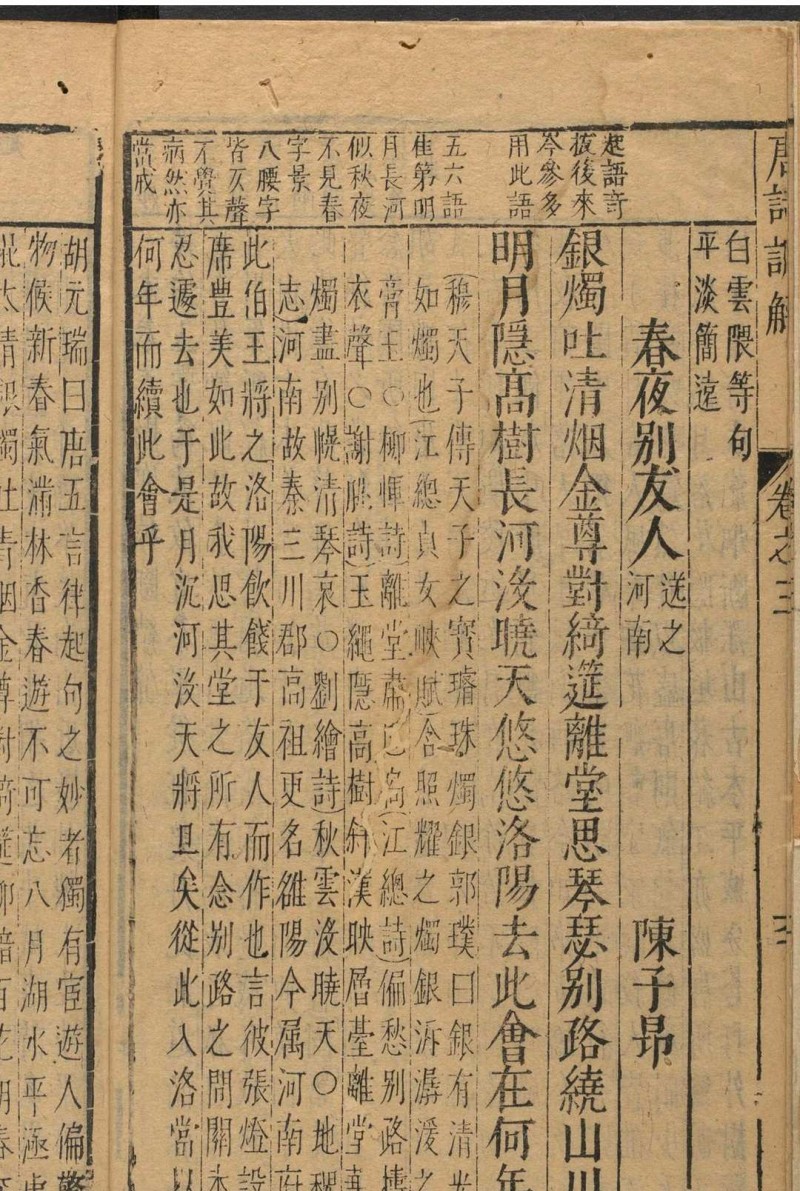 白雲隈等句
平淡簡遠
春夜别友人
送之
河南
陳子昻
銀燭吐清烟金尊對綺筵離堂思琴瑟别路繞山川
明月隱高樹長河没曉天悠悠洛陽去此會在何年
起語奇
拔後來
岑參多
用此語
五六語
隹第明
月長河
似秋夜
不見春
字景
八腰字
皆仄聲
不覺其
病然亦
當戒
穆天子傳天子之寶璿珠燭銀郭璞曰銀有清光
如燭也江總貞女峽賦含照耀之燭銀泝潺湲之
膏玉○柳惲詩離堂江總詩偏愁别路
衣聲○謝朓詩玉繩隱高樹斜漢映層臺離堂
燭盡别幌清琴哀○劉繪詩秋雲没曉天○地理
志河南故秦三川郡高祖更名雒陽今属河南府
此伯王將之洛陽飲餞于友人而作也言彼張燈設
席豊美如此故我思其堂之所有念别路之間關
忍遽去也于是月沉河没天將旦矣從此入洛當以
何年而續此會乎
胡元瑞曰唐五言律起句之妙者獨有宦遊人偏驚
物候新春氣滿林香春遊不可忘八月湖水平涵虚
太清銀燭吐青烟金尊對綺筵柳暗百花明春
唐詩訓解
卷之三